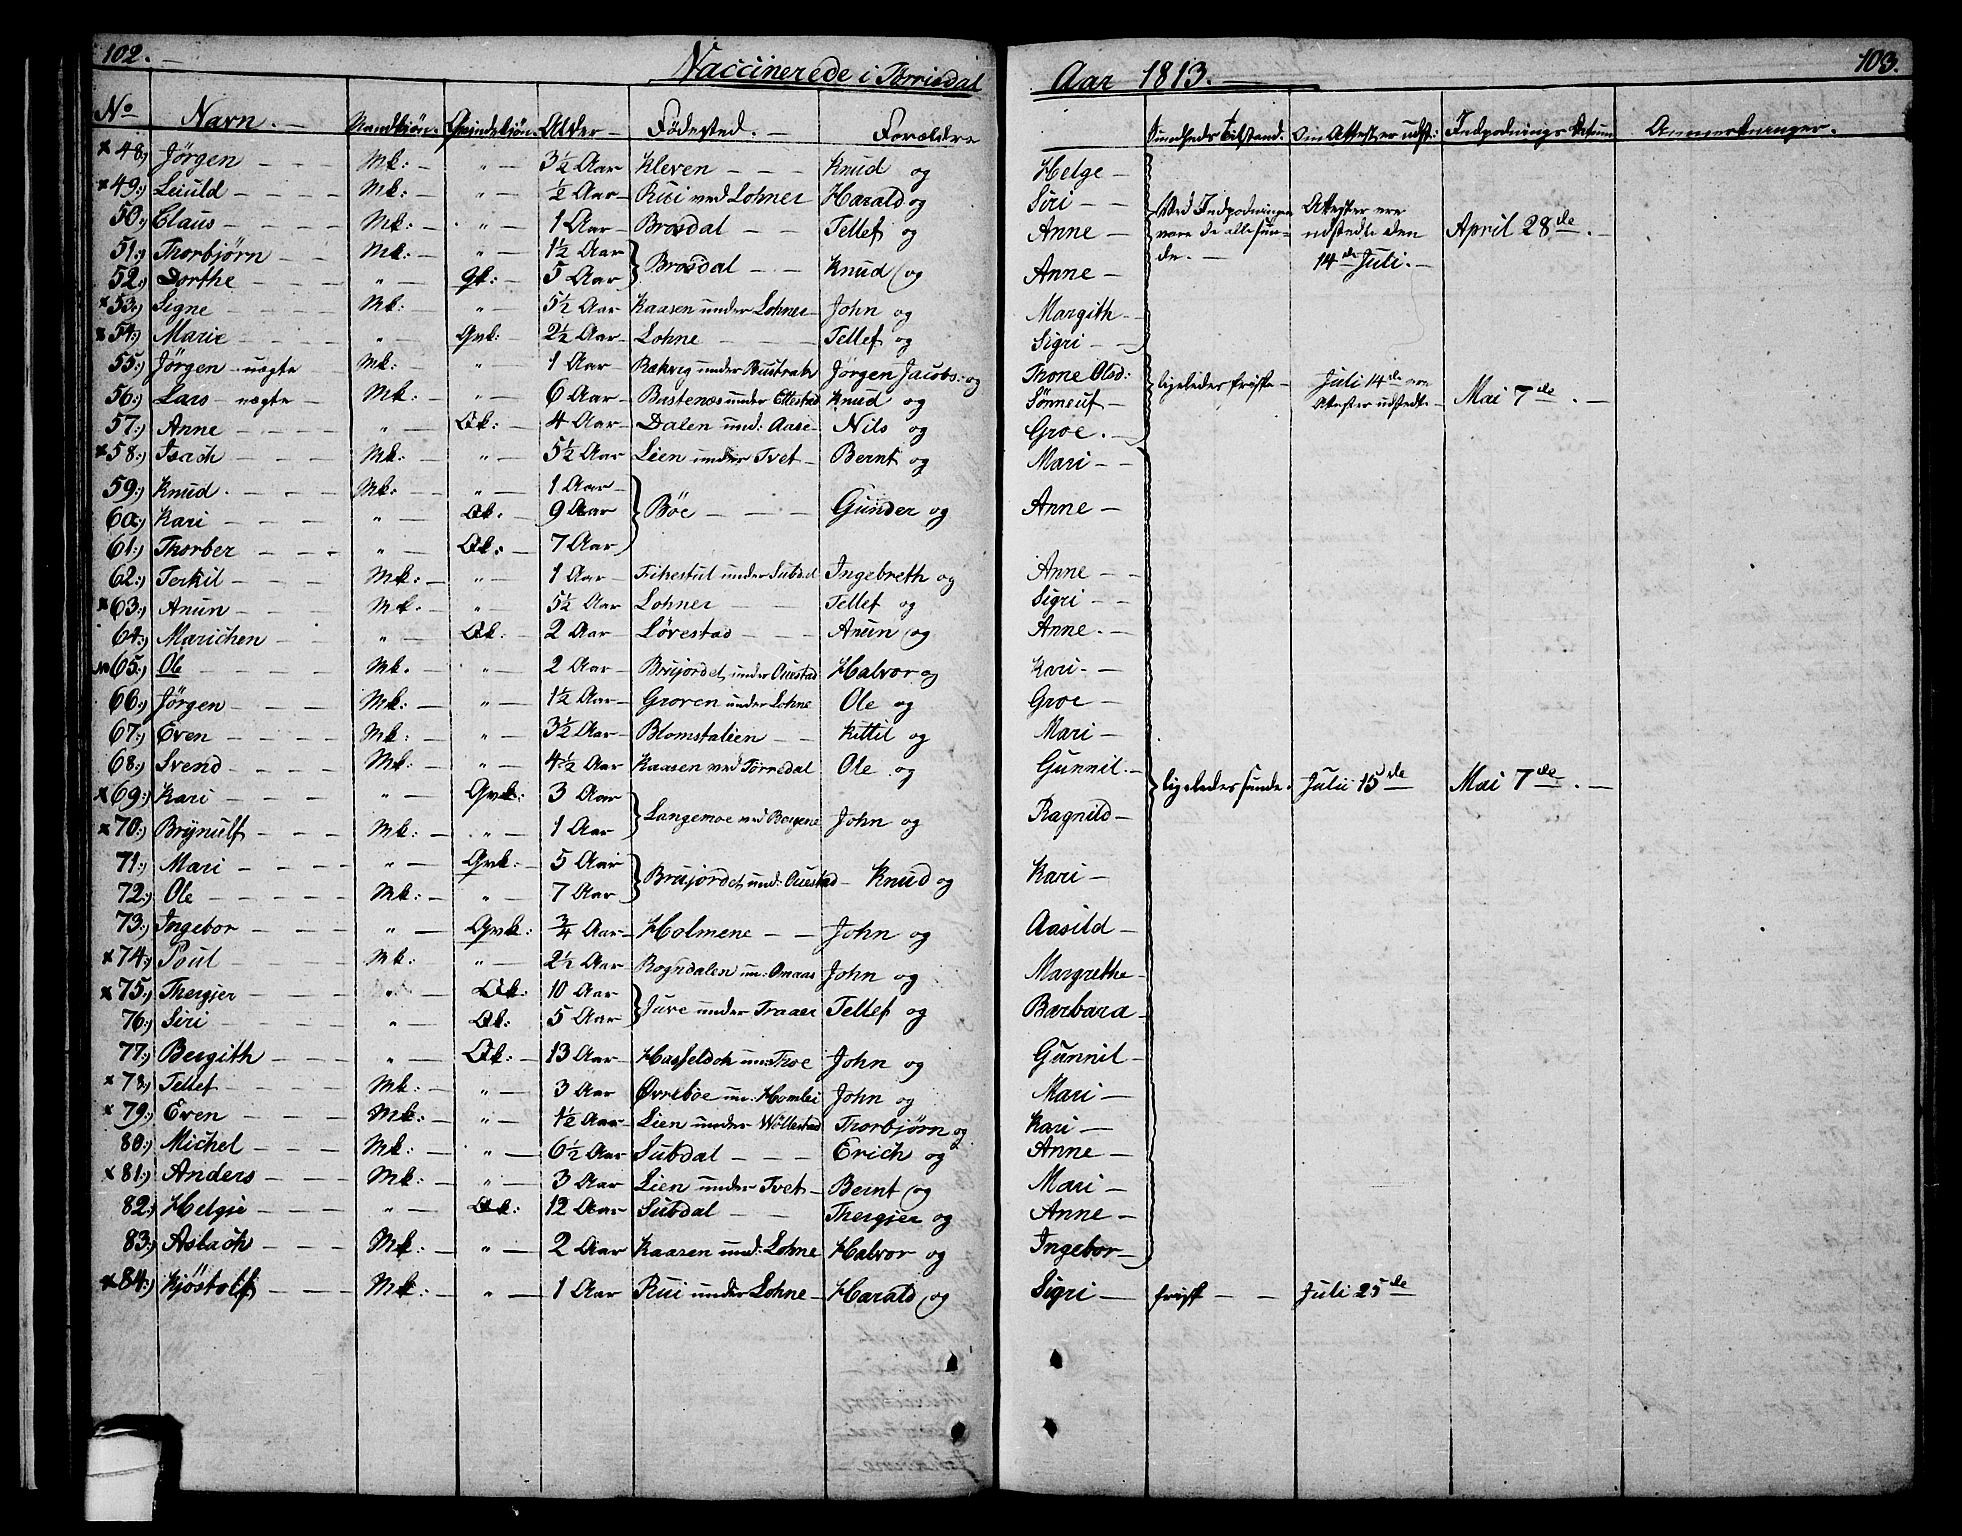 102.
Vaccinerede i Tørrisdal
Aar 1813.
103.
No Navn. Mandkiøn. Qvindekiøn. Alder Födested. Forældre Sundheds Tilstand. Om Attest er udst: Indpodnings Datum Anmerkninger.
× 48,) Jörgen — Mk: — " — 3½ Aar Kleven — Knud og Helge —
× 49,) Leiuld — Mk: — " — ½ Aar — Rui ved Lohner Harald og Siri —
50,) Claus — Mk: — " — 1 Aar — Brosdal — Tellef og Anne — Ved Indpodningen vare de alle sunde. — Attester ere udstedte den 14de Juli. — April 28de. —
51,) Thorbjörn — Mk: — " — 1½ Aar
52,) Dorthe — " — Qk: — 5 Aar — Brosdal — Knud og Anne —
× 53,) Signe — Mk: — " — 5½ Aar Kaasen under Lohner — John og Margith —
× 54,) Marie — " — Qvk: — 2½ Aar — Lohne — Tellef og Sigri —
55,) Jörgen — uægte Mk: — " — 1 Aar — Jörgen Jacobs: og Throne Olsd:
56,) Lars — uægte — Mk: — " — 6 Aar — Bastenæs under Knud og Sönneuf — ligeledes friske — Juli 14de ere Attester udstedte — Mai 7de. —
57,) Anne — " — Qk: — 4 Aar — Dalen und: Aase — Nils og Groe. —
× 58,) Isach — Mk: — " — 5½ Aar Lien under Tvet — Bernt og Mari —
59,) Knud. — Mk: — " — 1 Aar —
60,) Kari — " — Qk: — 9 Aar Böe — Gunder og Anne —
61,) Thorber — " — Qk: — 7 Aar
62,) Terkil — Mk: — " — 1 Aar — under Subdal Ingebreth og Anne —
× 63,) Anun — Mk. — " — 5½ Aar Lohner — Tellef og Sigri —
64,) Marichen — " — Qk: — 2 Aar Lövestad — Anun og Anne. —
65,) Ole Mk. " — 2 Aar — Brujordet under Auestad Halvor og Kari. —
66,) Jörgen — Mk: — " — 1½ Aar — Groven under Lohne Ole og Groe —
67,) Even — Mk: — " — 3½ Aar — Blomstalien — Kittil og Mari —
68,) Svend — Mk: — " — 4½ Aar Kaasen ved Törredal Ole og Gunnil. — ligeledes sunde. Juli 15de Mai 7de. —
× 69,) Kari — " — Qvk: — 3 Aar
× 70,) Brynulf — Mk: — " — 1 Aar Langemoe ved John og Ragnild —
71,) Mari — " — Qvk: — 5 Aar
72,) Ole — Mk: — " — 7 Aar Brujordet und: Auestad — Knud og Kari —
73,) Ingebor — " — Qvk: — ¾ Aar — Holmene — John og Aasild —
× 74,) Poul — Mk: " — 2½ Aar — Rogndalen un: Omaas John og Margrethe —
× 75,) Thergjer — " — Qk: — 10 Aar
76,) Siri — " — Qk: 5 Aar — Juve under Traaer Tellef og Barbara —
77,) Bergith — " — Qk: — 13 Aar — un: Thoe John og Gunnil —
× 78,) Tellef — Mk: — " — 3 Aar Øvreböe un: Homlei John og Mari —
× 79,) Even — Mk: — " — 1½ Aar — Lien under Wöllestad Thorbjörn og Kari —
80,) Michel — Mk: — " — 6½ Aar Subdal — Erich og Anne —
× 81,) Anders — Mk: — " — 3 Aar Lien under Tvet — Bernt og Mari —
82,) Helgje — " — Qk: — 12 Aar — Subdal — Thergjer og Anne —
83,) Aslach — Mk: — " — 2 Aar Kaasen und: Lohne Halvor og Ingebor —
× 84,) Kjöstolf — Mk: — " — 1 Aar Rui under Lohne — Harald og Sigri — frisk — Juli 25de